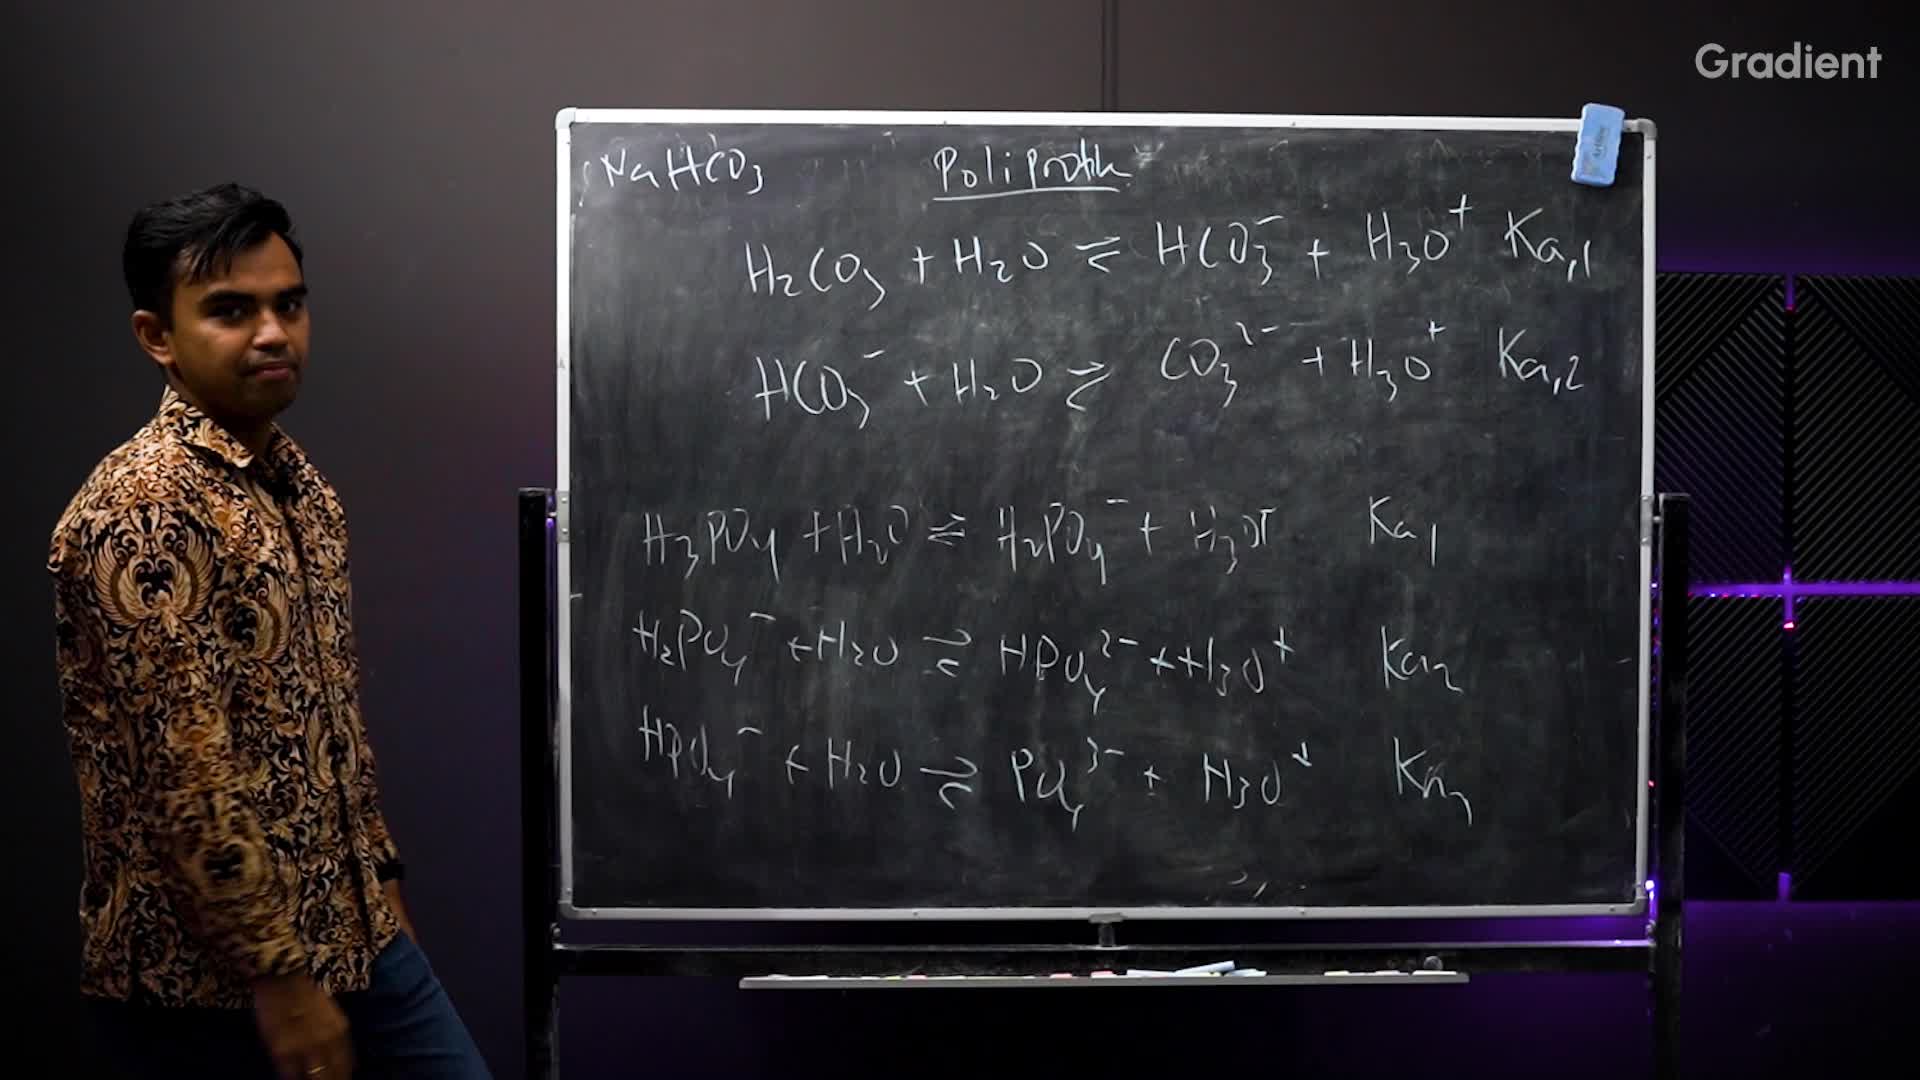 Gradient
NaHCO₃ Poliprotik
H₂CO₃ + H₂O ⇌ HCO₃⁻ + H₃O⁺ Ka,1
HCO₃⁻ + H₂O ⇌ CO₃²⁻ + H₃O⁺ Ka,2
H₃PO₄ + H₂O ⇌ H₂PO₄⁻ + H₃O⁺ Ka₁
H₂PO₄⁻ + H₂O ⇌ HPO₄²⁻ + H₃O⁺ Ka₂
HPO₄⁻ + H₂O ⇌ PO₄³⁻ + H₃O⁺ Ka₃